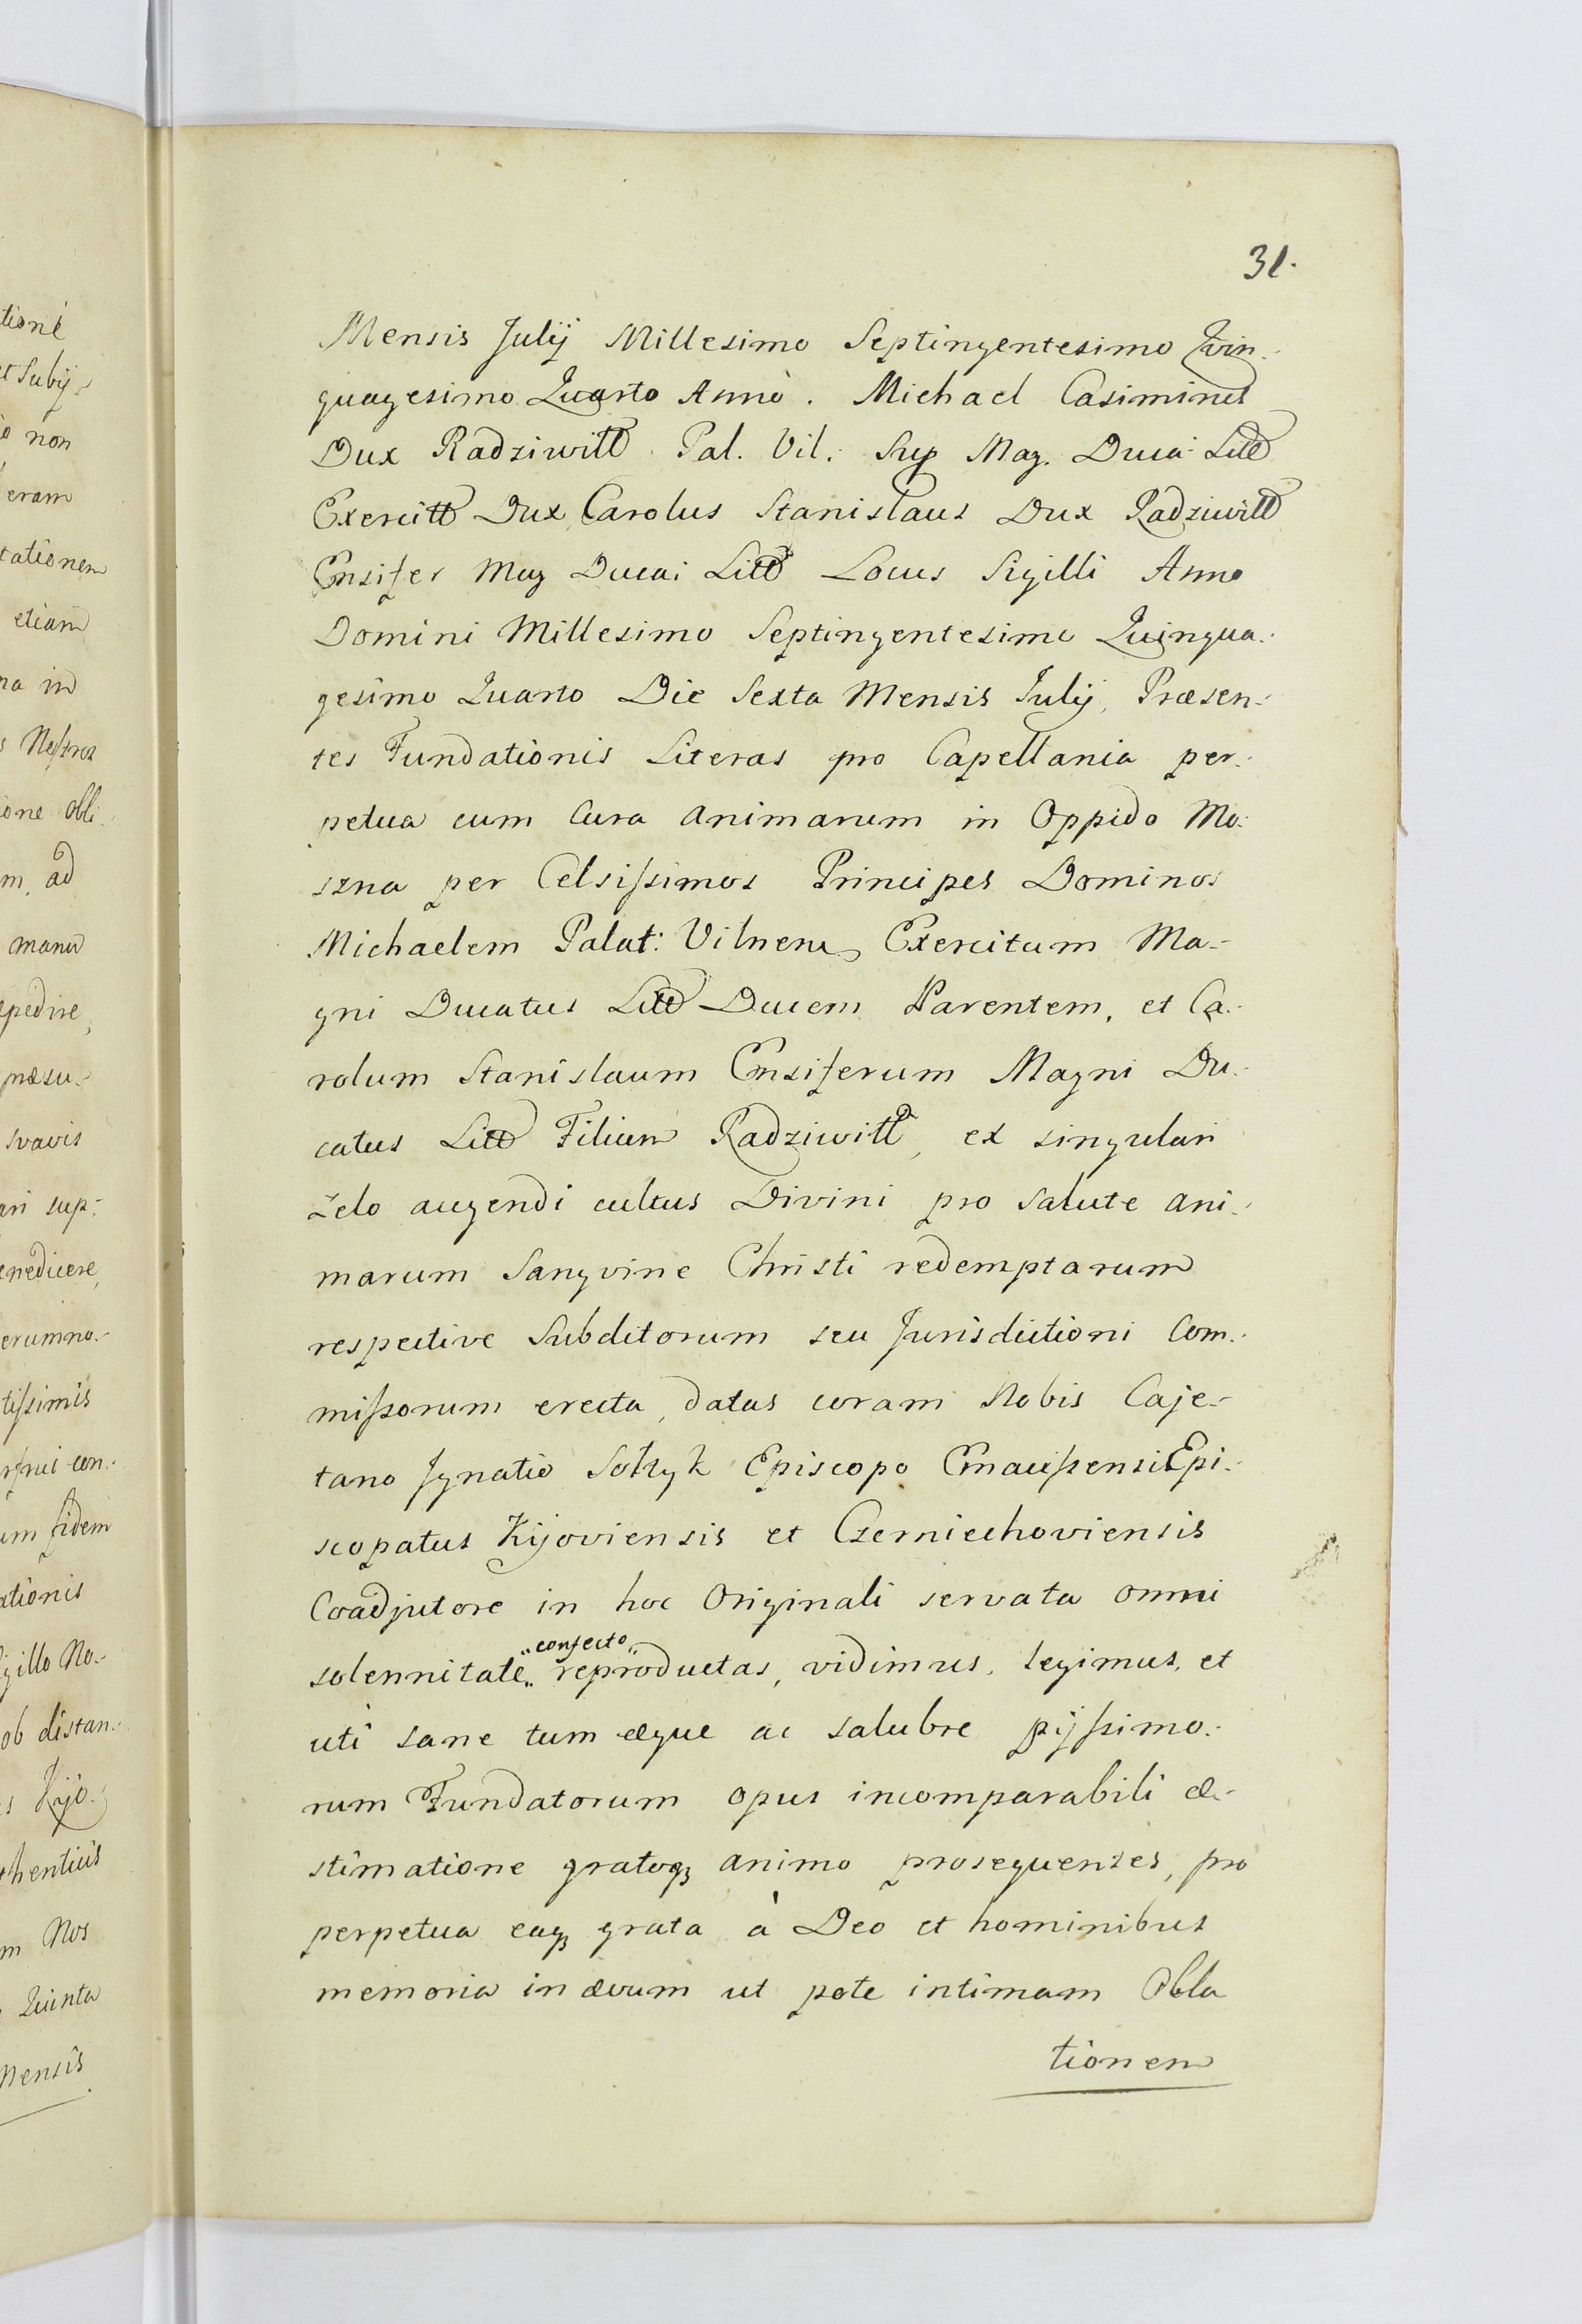 tione
et Subij-
o non
eram
tationem
etiam
na in
s Nostros
ione obli-
m, ad
manu
epedire,
præsu-
svavis
ari sup-
enedicere,
erumno-
tissimis
rfrui con-
um fidem
ationis
igillo No-
ob distan-
s Kijo-
thenticis
m Nos
Quinta
Mensis
31.
Mensis Julij Millesimo Septingentesimo Qvin-
quagesimo Quarto Anno. Michael Casimirus
Dux Radziwiłł Pal. Vil. Sup Mag. Ducá Litt
Exercitt Dux, Carolus Stanislaus Dux Radziwiłł
Ensifer Mag Ducai Litt Locus Sigilli Anno
Domini Millesimo Septingentesimo Quinqua-
gesimo Quarto Die Sexta Mensis Julij, Præsen-
tes Fundationis Literas pro Capellania per-
petua cum Cura Animarum in Oppido Mo-
szna per Celsissimos Principes Dominos
Michaelem Palat: Vilnens Exercitum Ma-
gni Ducatus Litt Ducem Parentem, et Ca-
rolum Stanislaum Ensiferum Magni Du-
catus Litt Filium Radziwiłł, ex singulari
zelo augendi cultus Divini pro salute ani-
marum Sangvine Christi redemptarum
respective Subditorum seu Jurisdictioni Com-
missorum erecta, datas coram Nobis Caje-
tano Ignatio Sołtyk Episcopo Emaussensi Epi-
scopatus Kijoviensis et Czerniechoviensis
Coadjutore in hoc Originali servata omni
solennitate „confecto„ reproductas, vidimus, legimus, et
uti sane tum æque ac salubre pijssimo-
rum Fundatorum opus incomparabili æ-
stimatione gratoq3 animo prosequentes, pro
perpetua eaq3 grata à Deo et hominibus
memoria in ævum ut pote intimam Obla
tionem